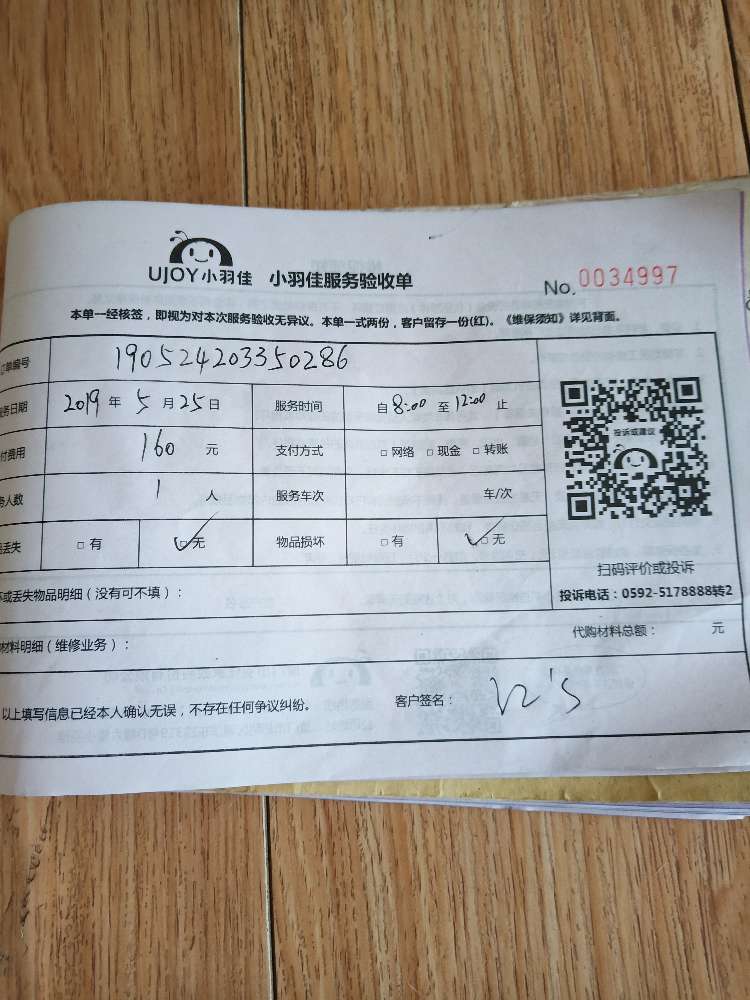 UJOY小羽佳 小羽佳服务验收单 No. 0034997
本单一经核签，即视为对本次服务验收无异议。本单一式两份，客户留存一份(红)。《维保须知》详见背面。
订单编号 190524203350286
务日期 2019 年 5 月 25 日 服务时间 自 8:00 至 12:00 止
付费用 160 元 支付方式 □ 网络 □ 现金 □ 转账
务人数 1 人 服务车次 车/次
丢失 □ 有 □ 无 物品损坏 □ 有 □ 无
投诉或建议
扫码评价或投诉
投诉电话：0592-5178888转2
坏或丢失物品明细（没有可不填）：
材料明细（维修业务）： 代购材料总额： 元
以上填写信息已经本人确认无误，不存在任何争议纠纷。 客户签名：